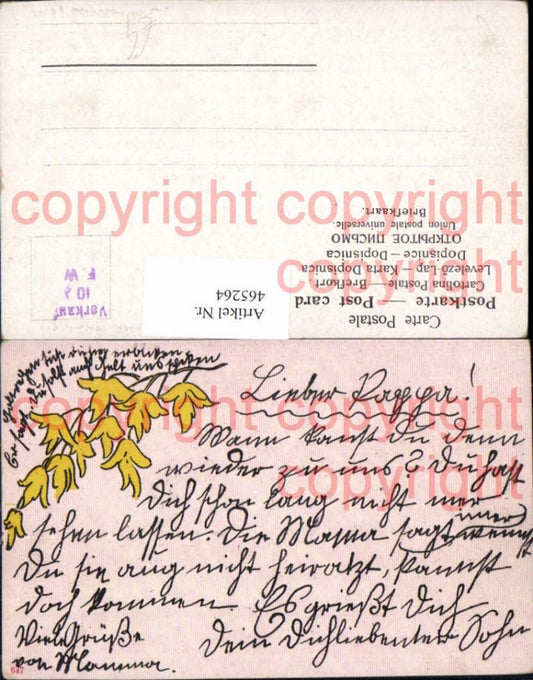 copyright copyright
Carte Postale
Postkarte — Post card
Cartolina Postale — Brefkort
Levelező-Lap — Karta Dopisnica
Dopisnice — Dopisnica
ОТКРЫТОЕ ПИСЬМО
Union postale universelle.
Briefkaart.
copyright copyright
Artikel Nr.
465264
Verkauf
10
F. W
copyright copyright
Lieber Pappa!
Wann kanst Du denn
wieder zu uns? Du hast
Dich schon lang nicht mer
sehen lassen. Die Mama sagt immer wennst
Du sie aug nicht heiratzt, kannst
doch kommen. Es grießt Dich
Dein Dichliebenter Sohn
Viele Grüße
von Mamma.
647